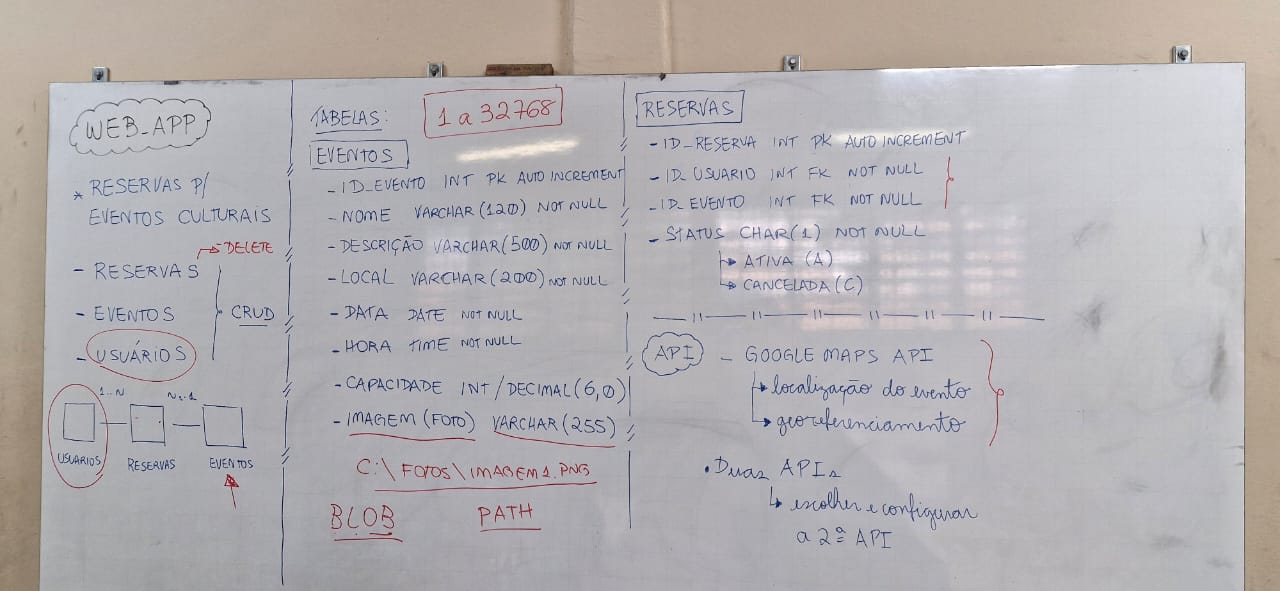 WEB_APP
* RESERVAS P/
EVENTOS CULTURAIS
→ DELETE
- RESERVAS
- EVENTOS
CRUD
- USUÁRIOS
1..N
N..1
USUARIOS
RESERVAS
EVENTOS
TABELAS:
1 a 32768
EVENTOS
- ID_EVENTO INT PK AUTO INCREMENT
- NOME VARCHAR(120) NOT NULL
- DESCRIÇÃO VARCHAR(500) NOT NULL
- LOCAL VARCHAR(200) NOT NULL
- DATA DATE NOT NULL
- HORA TIME NOT NULL
- CAPACIDADE INT/DECIMAL(6,0)
- IMAGEM (FOTO) VARCHAR(255)
C:\FOTOS\IMAGEM1.PNG
BLOB
PATH
RESERVAS
- ID_RESERVA INT PK AUTO INCREMENT
- ID_USUARIO INT FK NOT NULL
- ID_EVENTO INT FK NOT NULL
- STATUS CHAR(1) NOT NULL
↳ ATIVA (A)
↳ CANCELADA (C)
API - GOOGLE MAPS API
↳ localização do evento
↳ georeferenciamento
• Duas APIs
↳ escolher e configurar
a 2ª API